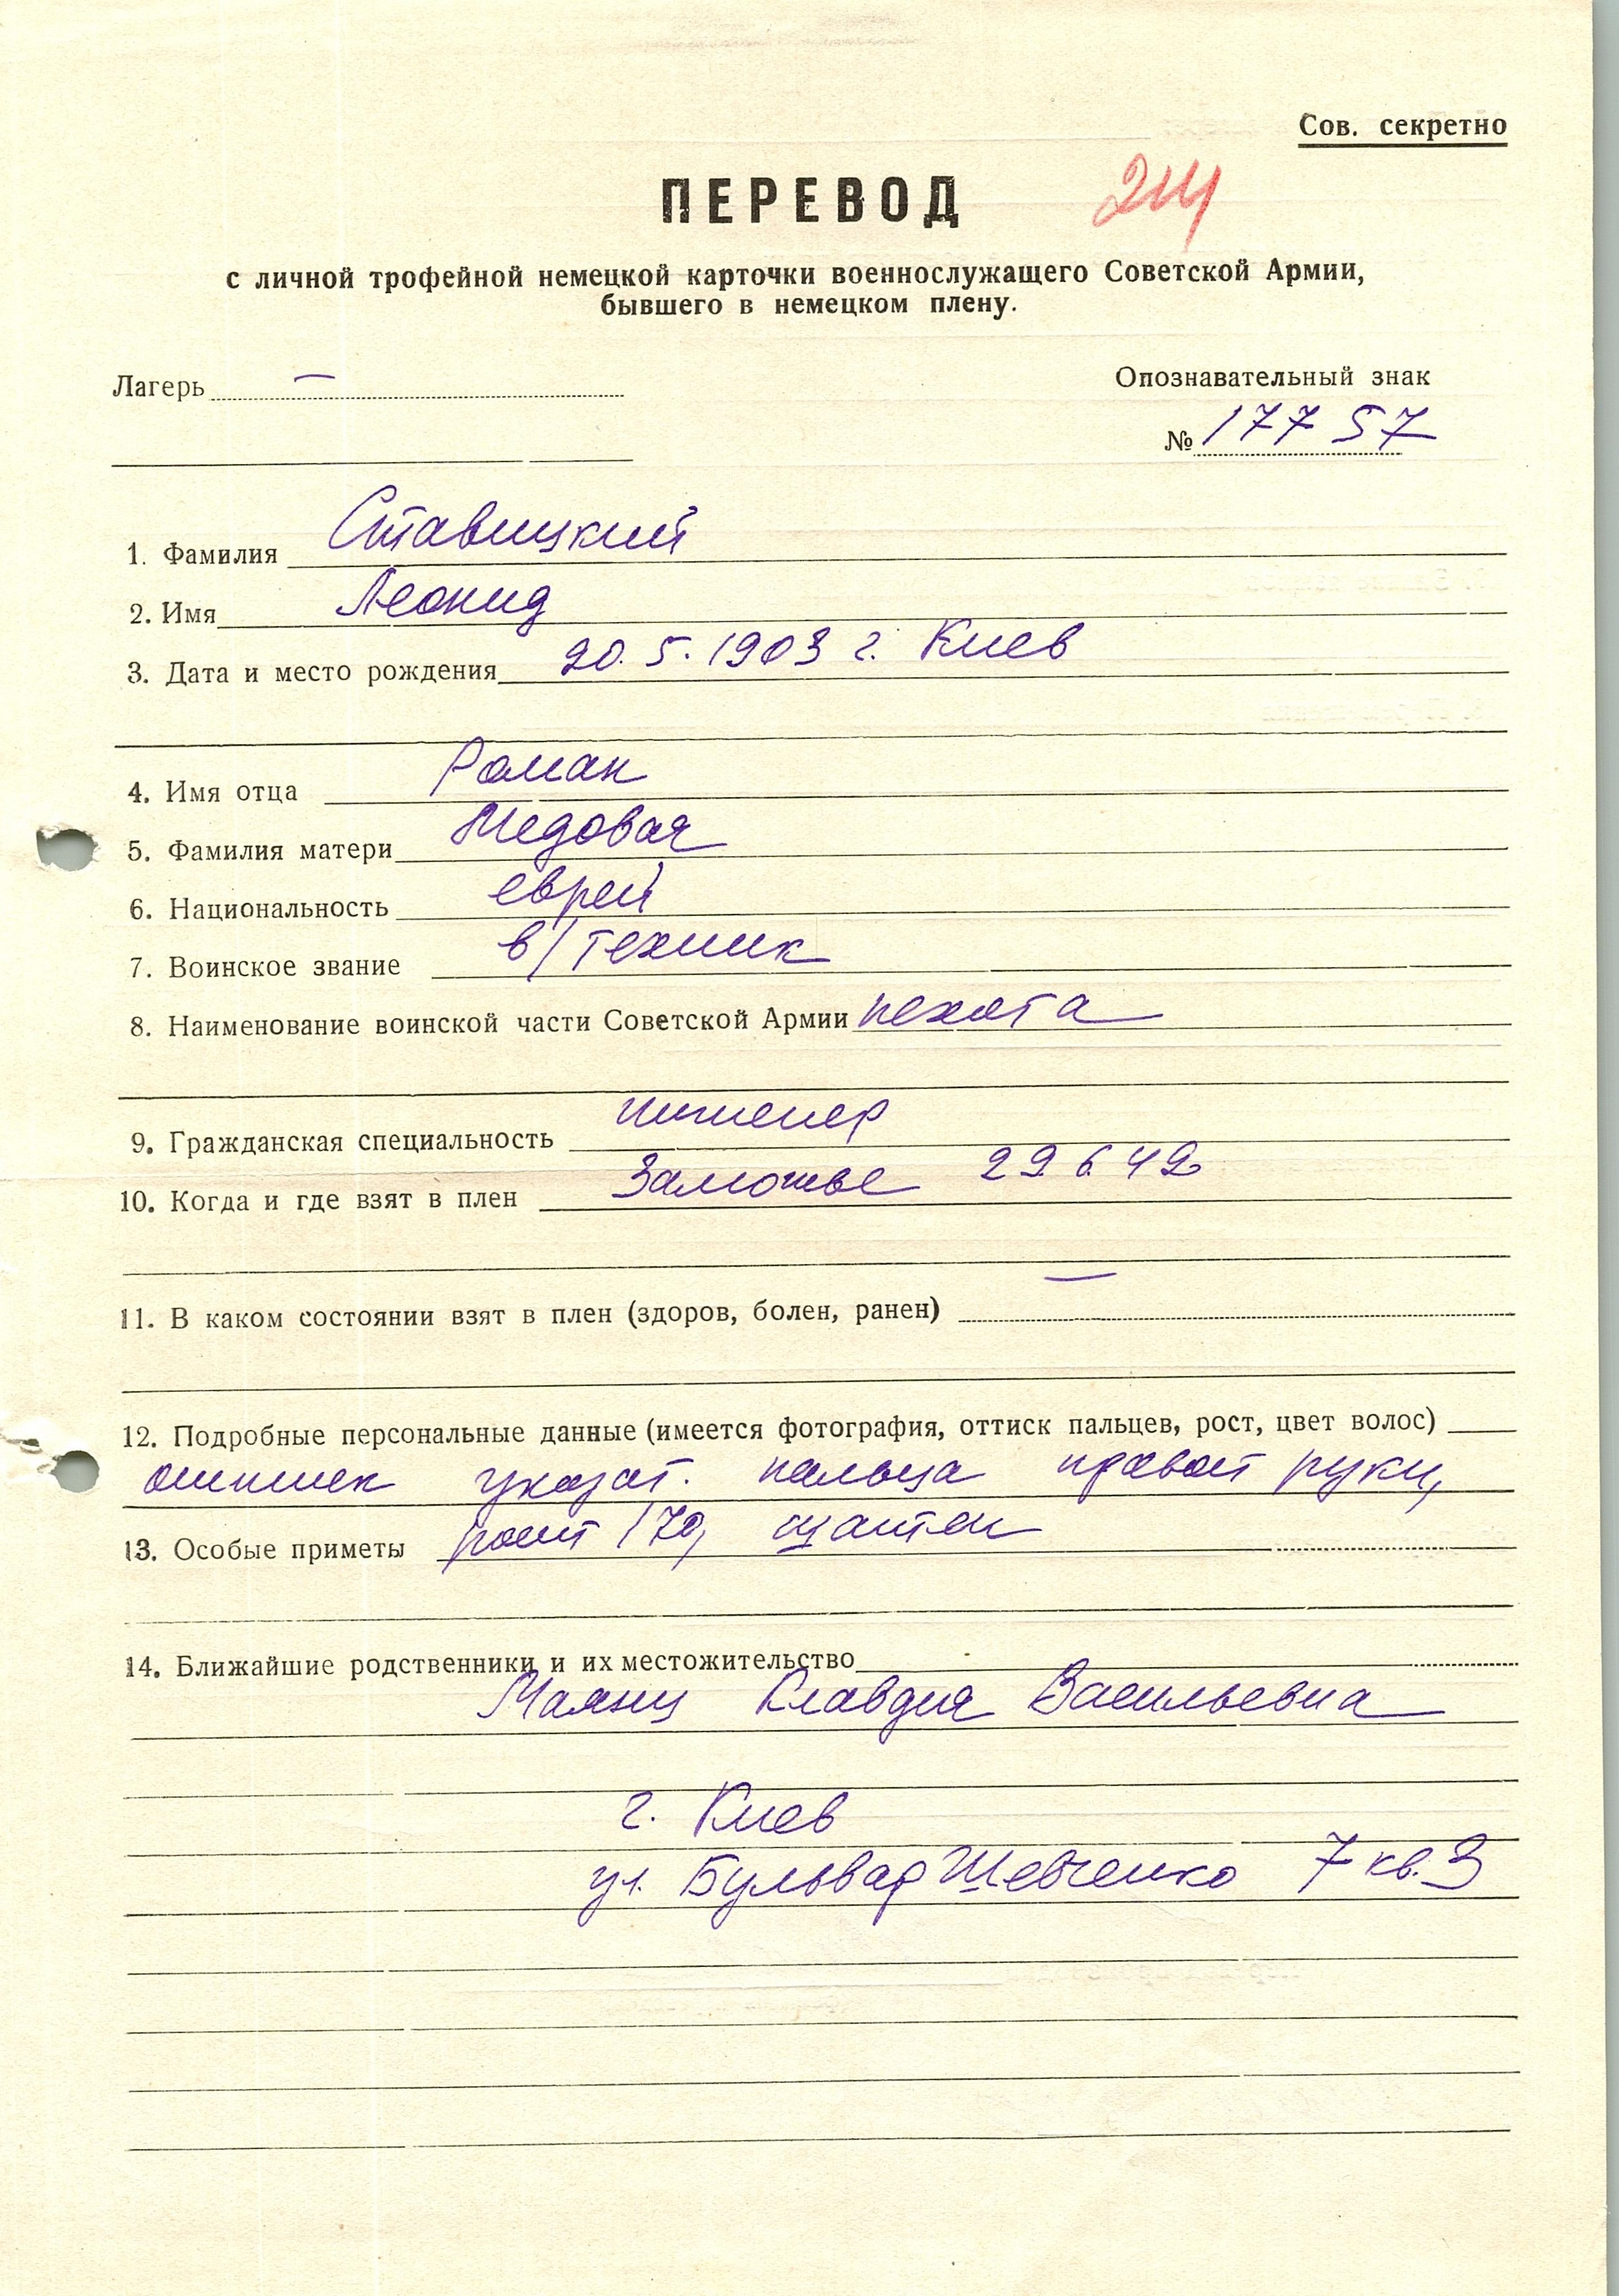 Сов. секретно
ПЕРЕВОД
с личной трофейной немецкой карточки военнослужащего Советской Армии,
бывшего в немецком плену.
Лагерь —
Опознавательный знак
№ 17757
1. Фамилия Ставицкий
2. Имя Леонид
3. Дата и место рождения 20.5.1903 г. Киев
4. Имя отца Роман
5. Фамилия матери Медовая
6. Национальность еврей
7. Воинское звание в/техник
8. Наименование воинской части Советской Армии пехота
9. Гражданская специальность инженер
10. Когда и где взят в плен Заможье 29 6 42
11. В каком состоянии взят в плен (здоров, болен, ранен) —
12. Подробные персональные данные (имеется фотография, оттиск пальцев, рост, цвет волос)
указат. пальца правой руки,
13. Особые приметы рост 170, шатен
14. Ближайшие родственники и их местожительство
Маянц Клавдия Васильевна
г. Киев
ул. Бульвар Шевченко 7 кв. 3